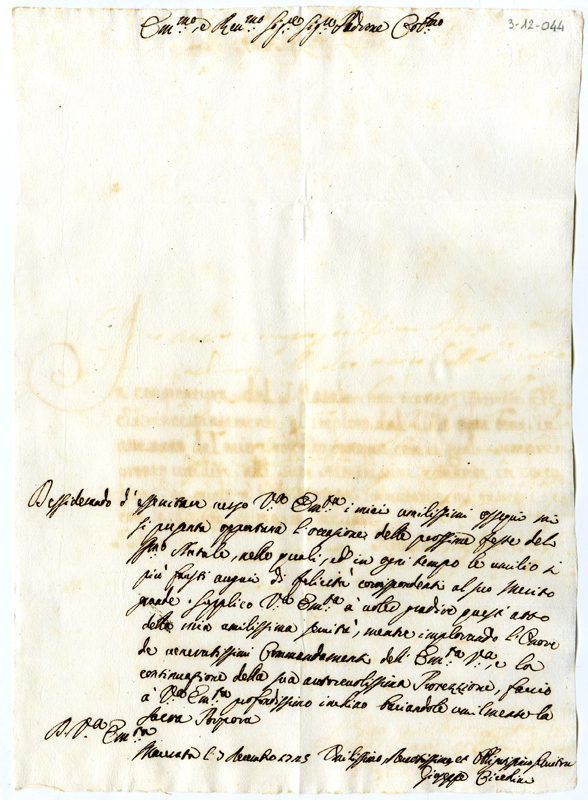 3-12-044
Em.mo, e Ren.mo Sig.re Sig.re Padrone Col.mo
Dessiderando d'essercitare verso V.ra Em.za i miei umilissimi ossequi mi
si presenta oppurtuna l'occasione delle prossime feste del
SS.mo Natale, nelle quali, ed in ogni tempo le umilio i
più fausti auguri di felicità corrispondenti al suo Merito
grande. Supplico V.ra Em.za à voler gradire quest'atto
della mia umilissima servitù, mentre implorando l'Onore
de veneratissimi Commandamenti dell'Em.za V.ra, e la
continuazione della sua autorevolissima Protezzione, faccio
à V.ra Em.za profondissimo inchino baciandole umilmente la
Sacra Porpora
D. V.ra Em.za
Macerata li
Decembre 1725
Umilissimo, Devotissimo, et Obligatissimo Servitore
Gioseppe